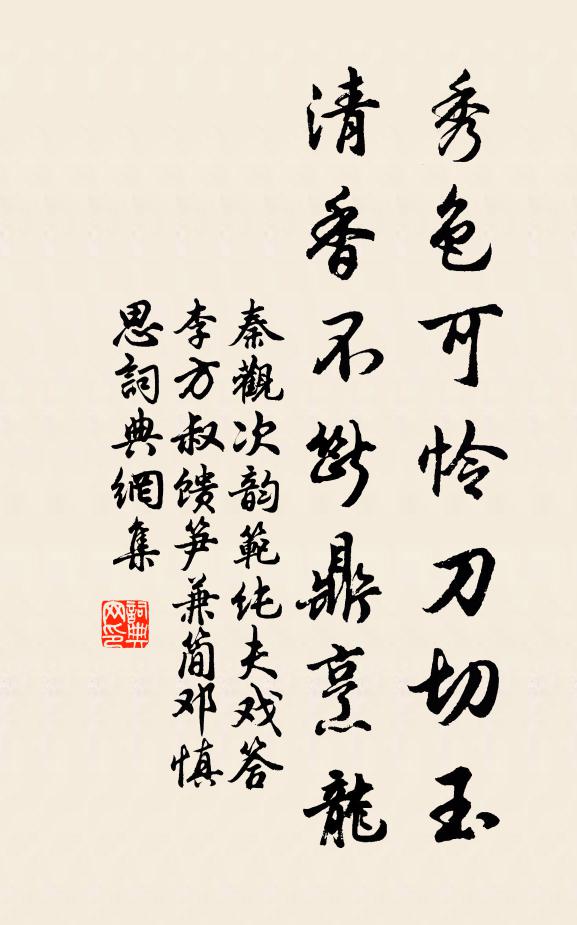 秀色可怜刀切玉
清香不断鼎烹龍
秦觀次韵範纯夫戏答
李方叔馈笋兼简邓慎
思詞典網集
詞典网印